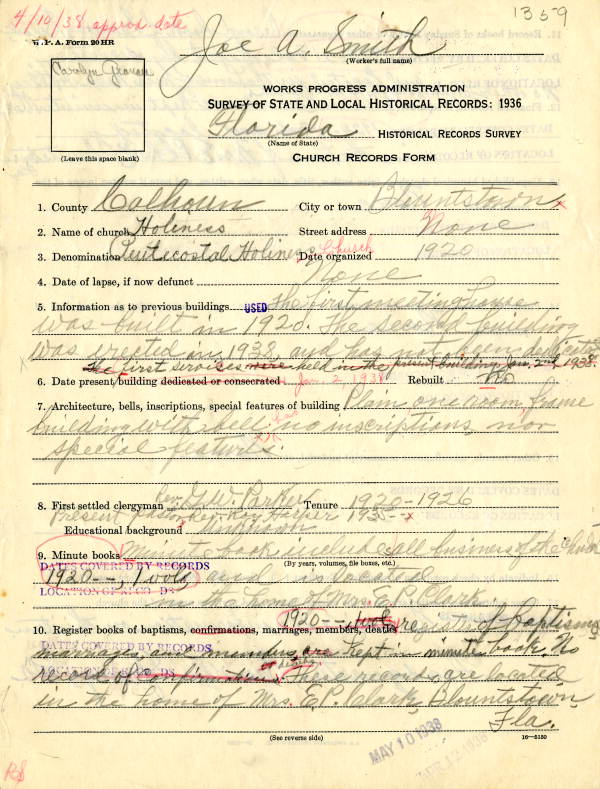 4/10/38 approx date
1359
W. P. A. Form 20 HR
Joe A. Smith
(Worker's full name)
Carolyn
(Leave this space blank)
WORKS PROGRESS ADMINISTRATION
SURVEY OF STATE AND LOCAL HISTORICAL RECORDS: 1936
Florida HISTORICAL RECORDS SURVEY
(Name of State)
CHURCH RECORDS FORM
1. County Calhoun City or town Blountstown x
2. Name of church Holiness Street address None
3. Denomination Pentecostal Holiness Church Date organized 1920
4. Date of lapse, if now defunct None
5. Information as to previous buildings USED The first meeting house
was built in 1920. The second building
was erected in 1938, and has not been dedicated
The first services were held in the present building Jan. 2nd, 1938.
6. Date present building dedicated or consecrated Jan. 2, 1938 Rebuilt No
7. Architecture, bells, inscriptions, special features of building Plain, one room, frame
building with bell, no inscriptions, nor
special features.
8. First settled clergyman Rev. G.W. Parker Tenure 1920-1926
Present pastor, Rev. 1935--x
Educational background Unknown
9. Minute books minute book includes all business of the church
(By years, volumes, file boxes, etc.)
DATES COVERED BY RECORDS
1920--, 1 vol. and is located
LOCATION OF RECORDS
in the home of Mrs. E.P. Clark.
1920--, 1 vol.
10. Register books of baptisms, confirmations, marriages, members, deaths register of Baptisms
marriages and members are kept in minute book. No
DATES COVERED BY RECORDS
record of confirmations or deaths. These records are located
LOCATION OF RECORDS
in the home of Mrs. E.P. Clark, Blountstown,
Fla.
(See reverse side)
16-5150
MAY 10 1938
APR 12 1938
RS